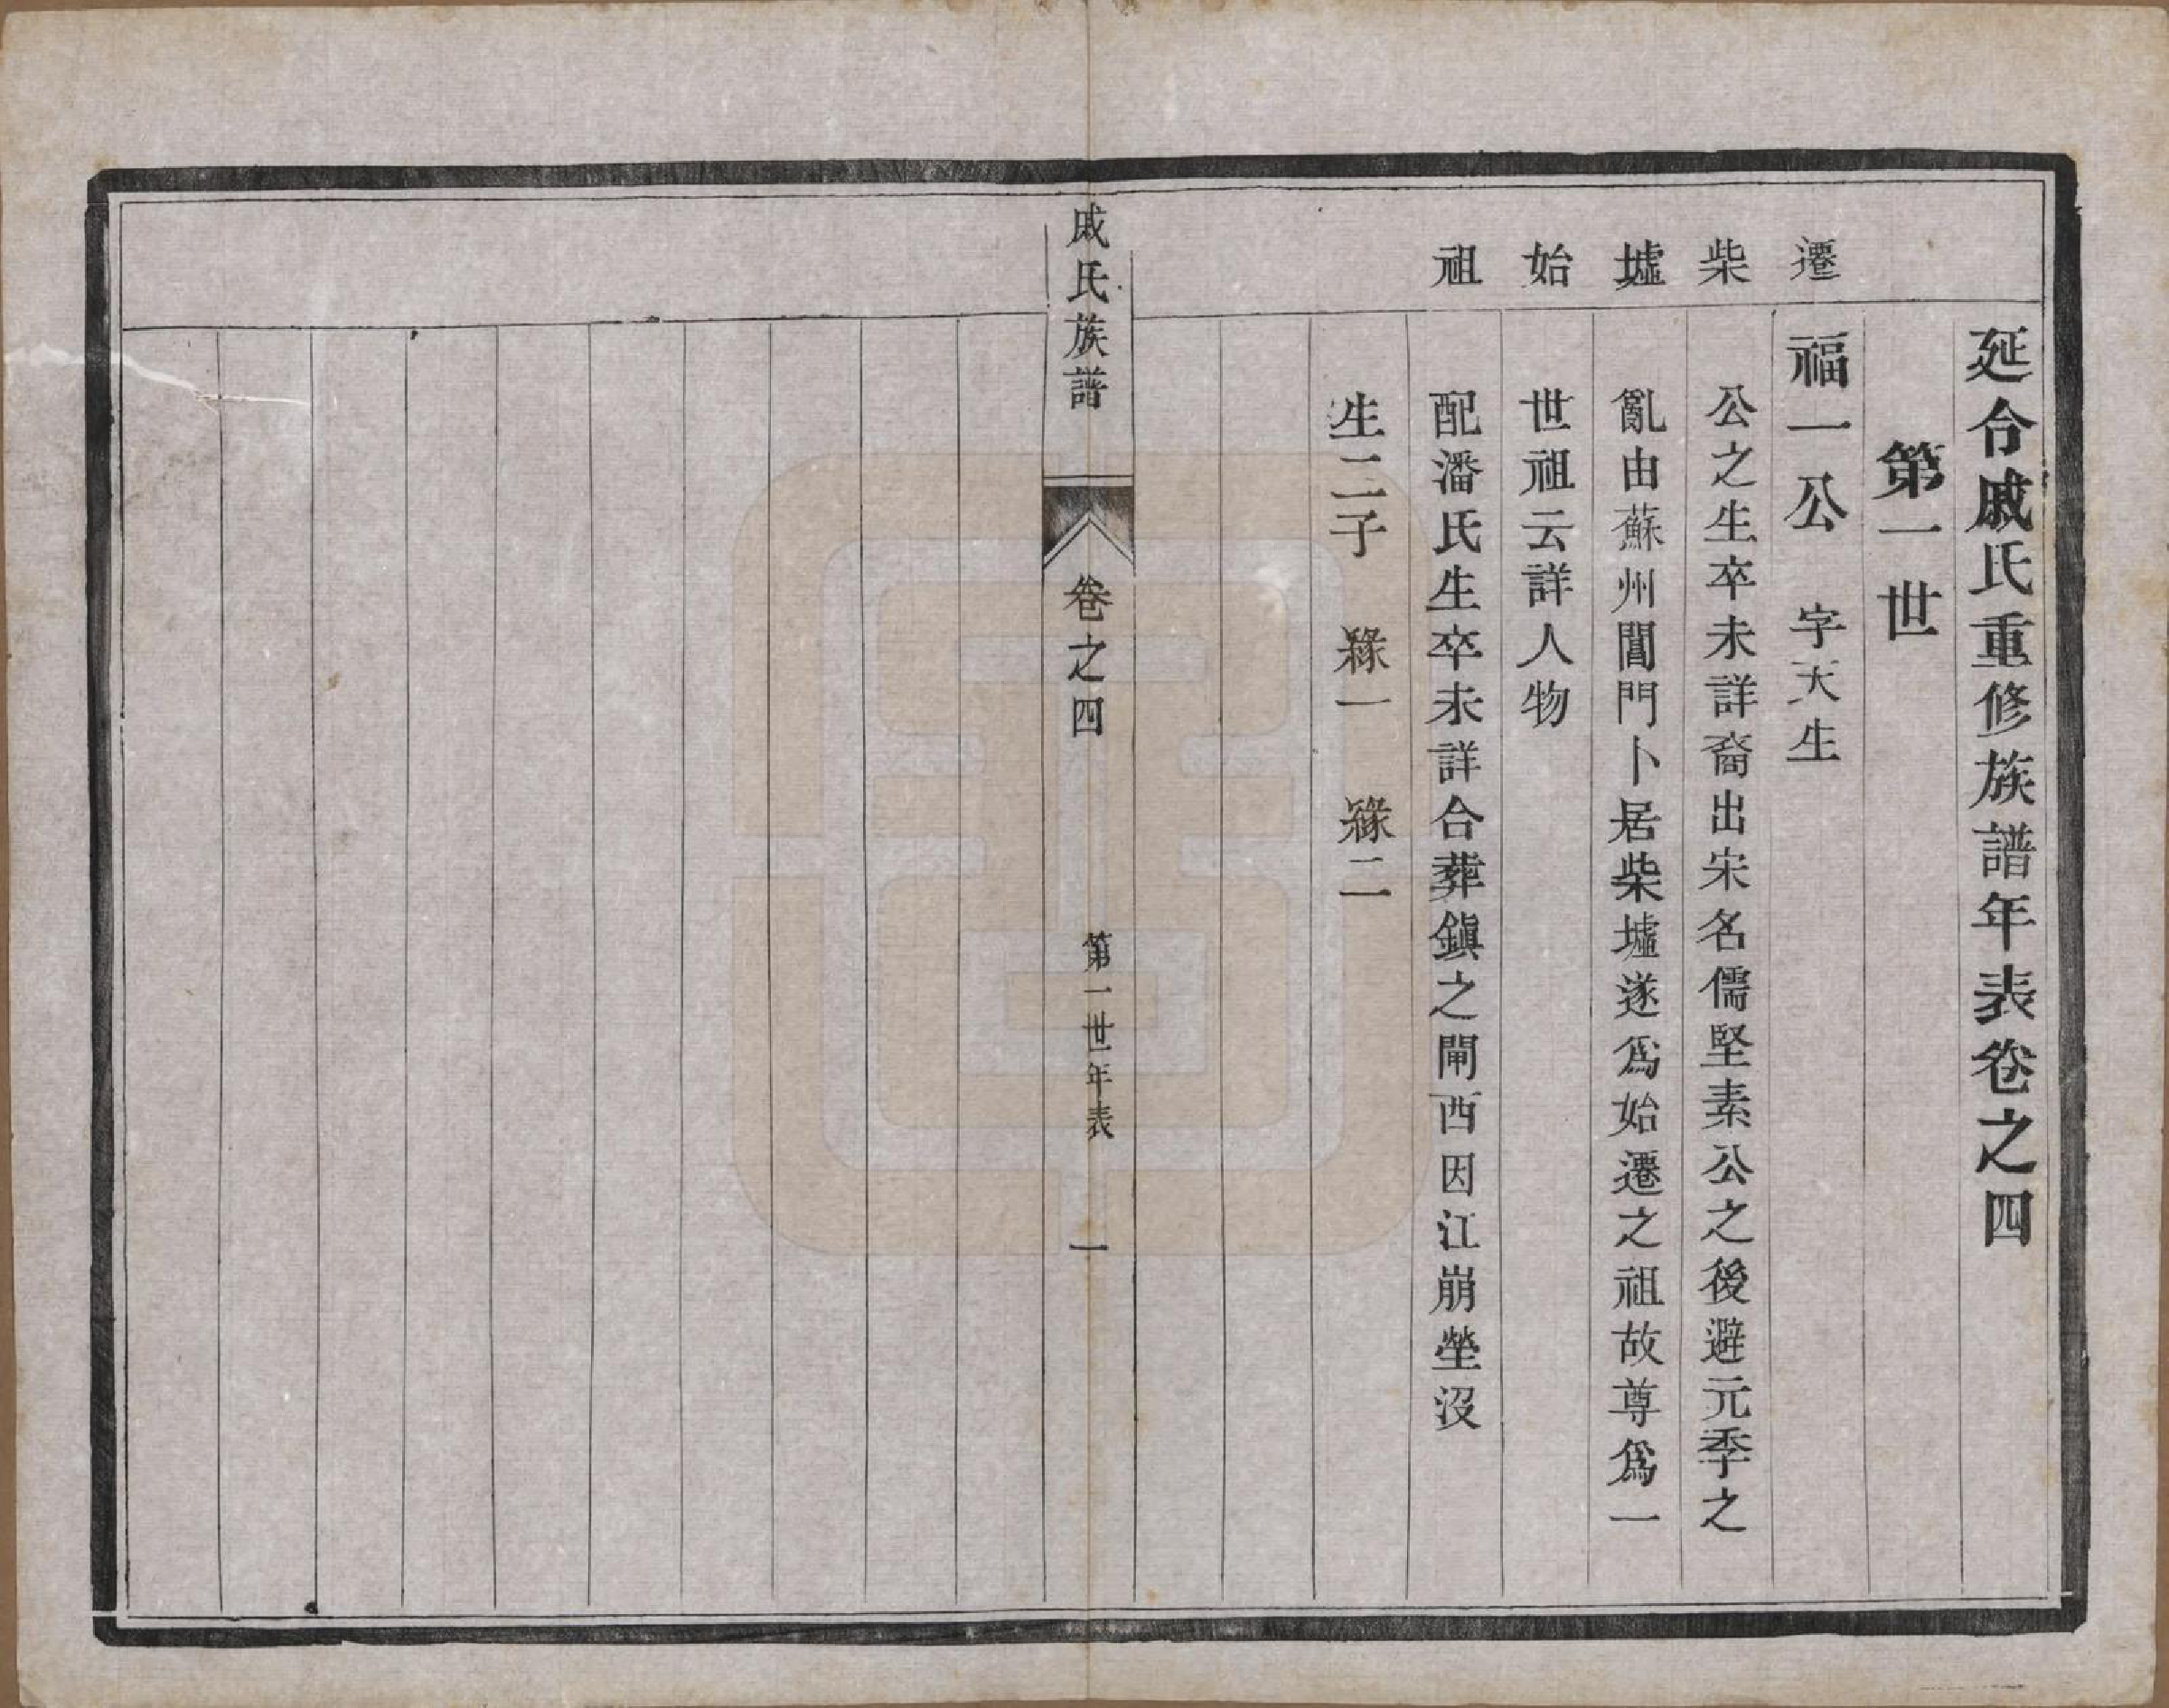 延令戚氏重修族譜年表卷之四
第一世
遷柴墟始祖
福一公　字天生
公之生卒未詳裔出宋名儒堅素公之後避元季之
亂由蘇州閶門卜居柴墟遂爲始遷之祖故尊爲一
世祖云詳人物
配潘氏生卒未詳合葬鎭之閘西因江崩塋沒
生二子　祿一　祿二
戚氏族譜　卷之四　第一世年表　一